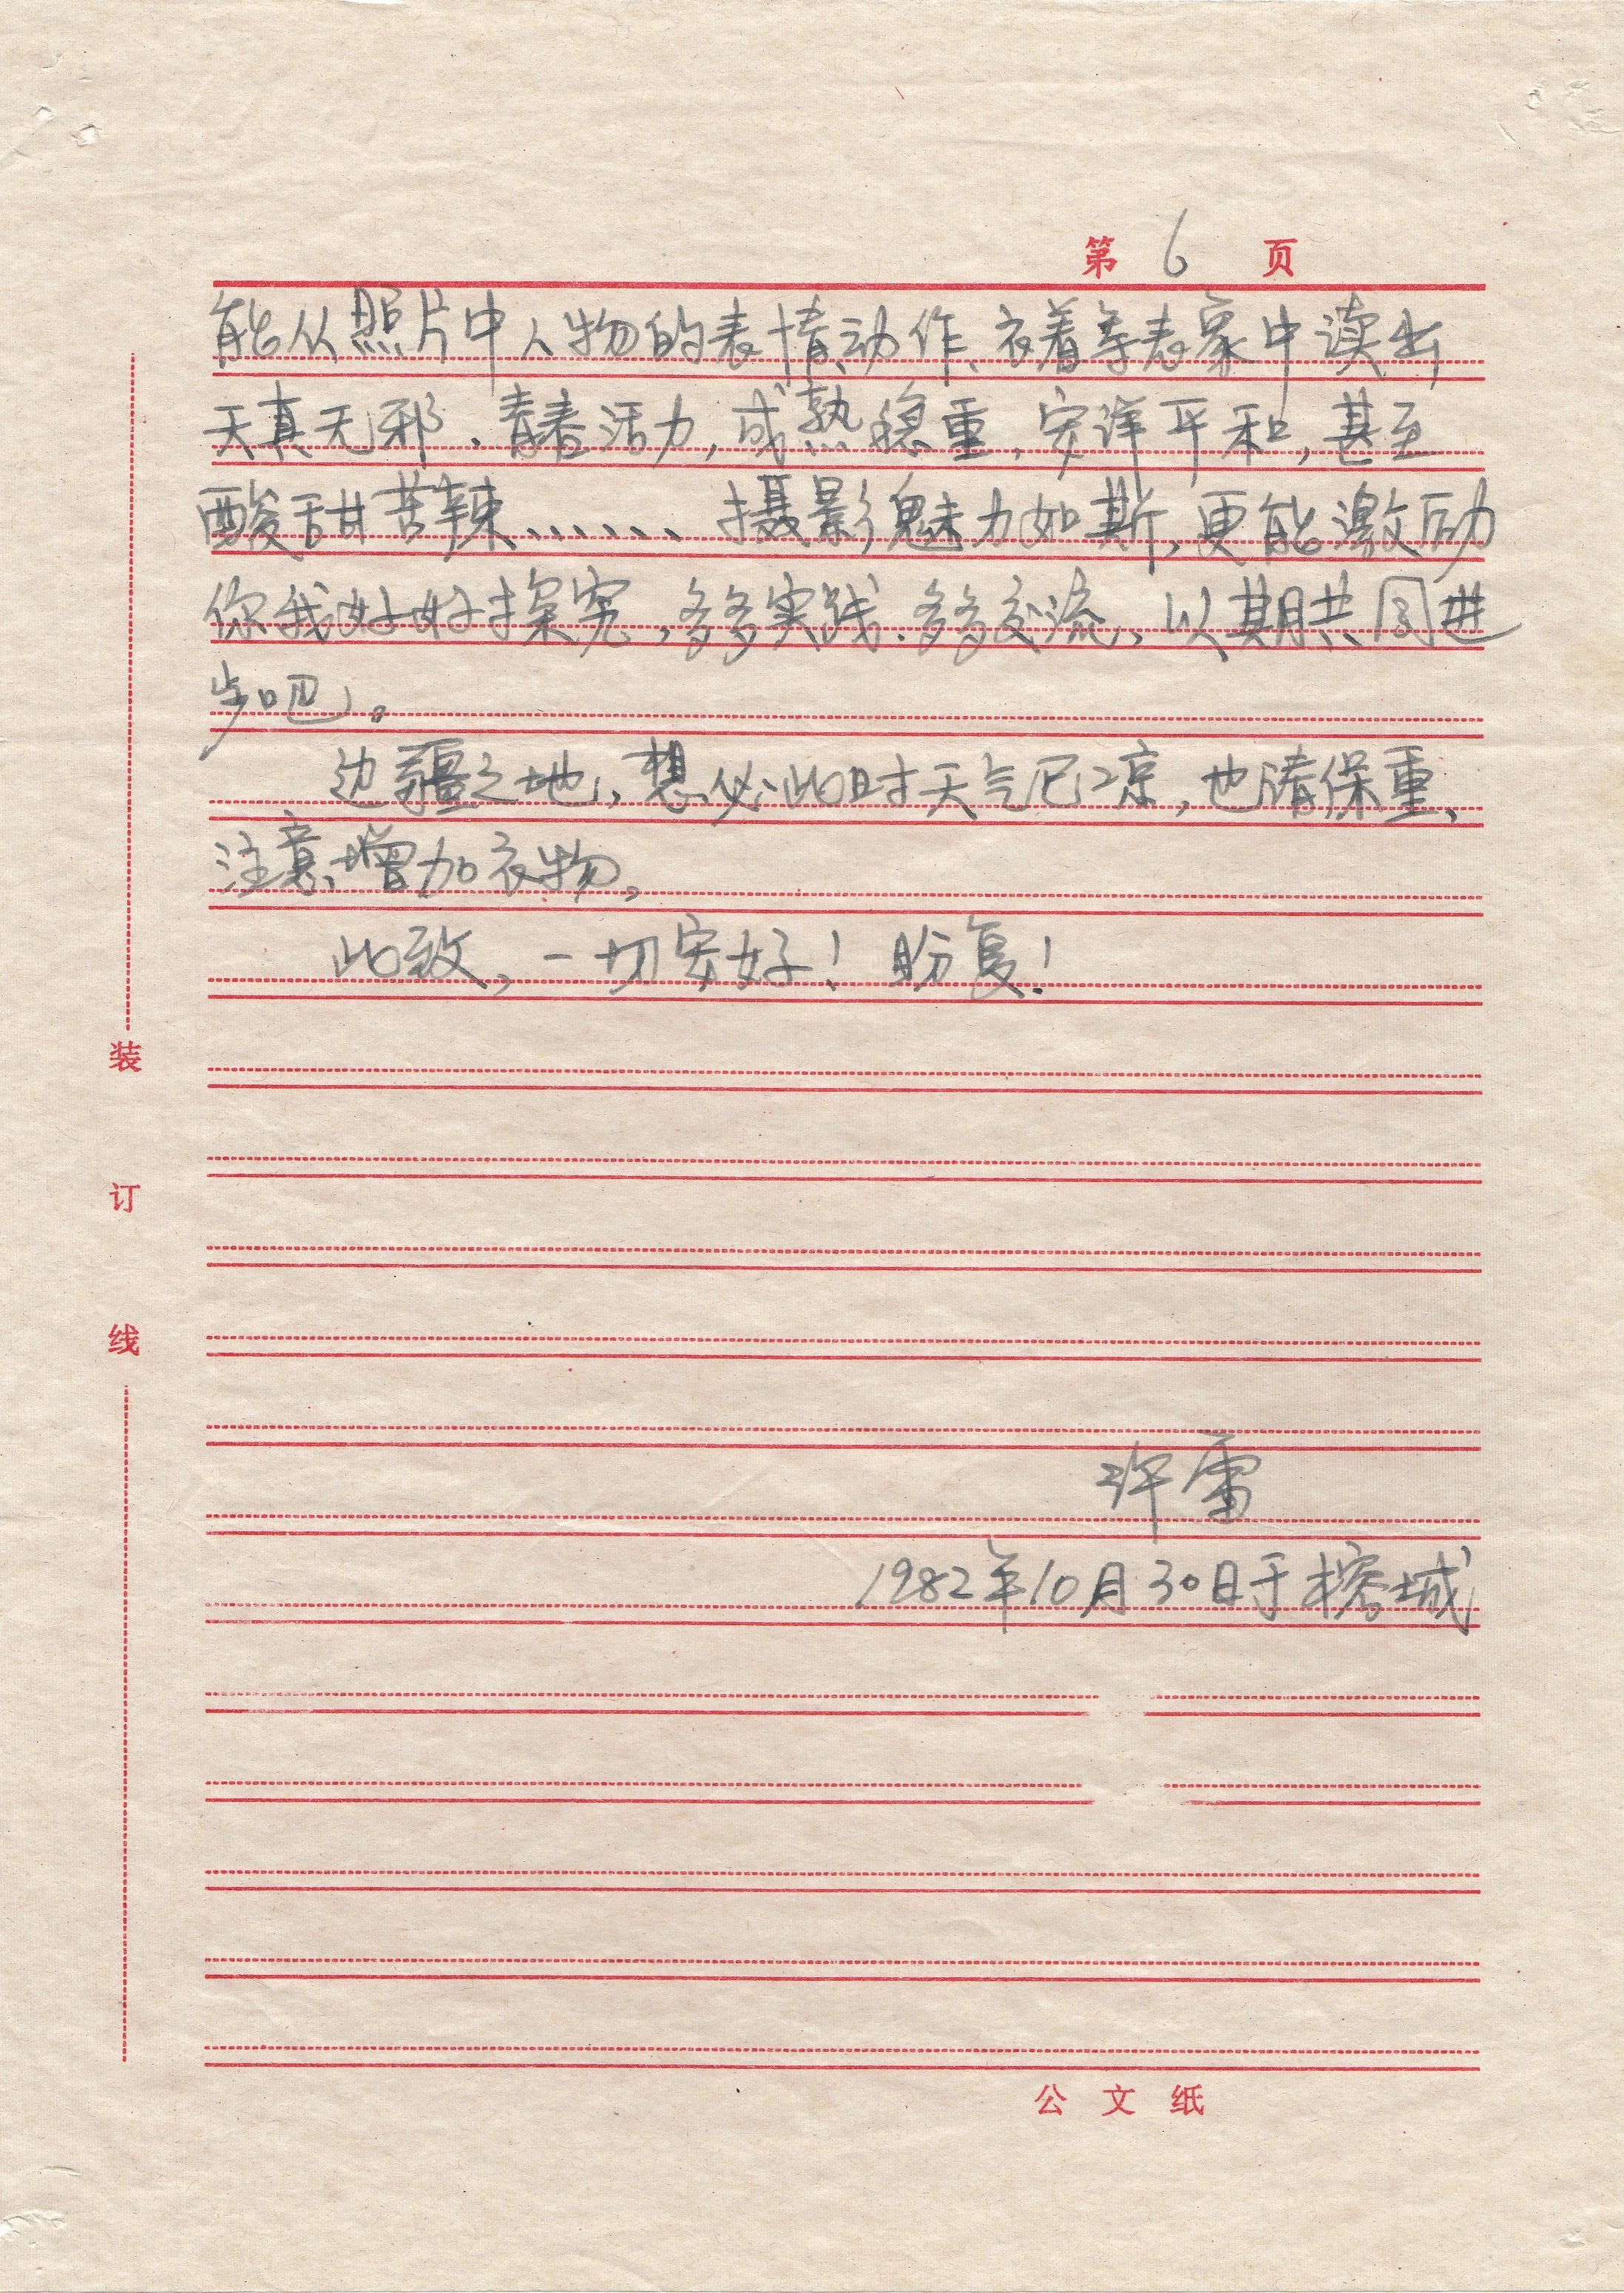 第 6 页
能从照片中人物的表情、动作、衣着等表象中读出
天真无邪、青春活力,成熟稳重,安详平和,甚至
酸甜苦辣…… 摄影魅力如斯,更能激励
你我好好探究,多多实践.多多交流,以期共同进
步吧。
边疆之地,想必此时天气已凉,也请保重、
注意增加衣物。
此致,一切安好!盼复!
装
订
线
许雷
1982年10月30日于榕城
公文纸